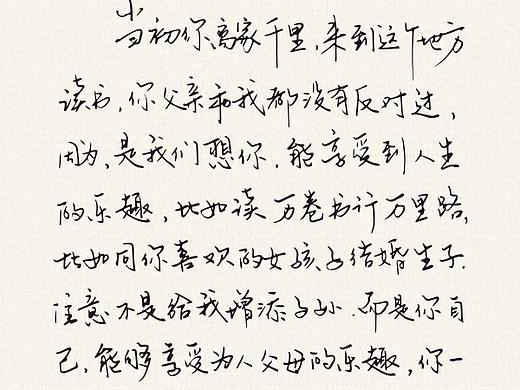 当初你离家千里,来到这个地方
读书,你父亲和我都没有反对过,
因为,是我们想你,能享受到人生
的乐趣,比如读万卷书行万里路,
比如同你喜欢的女孩子结婚生子.
注意不是给我增添子孙.而是你自
己,能够享受为人父母的乐趣,你一